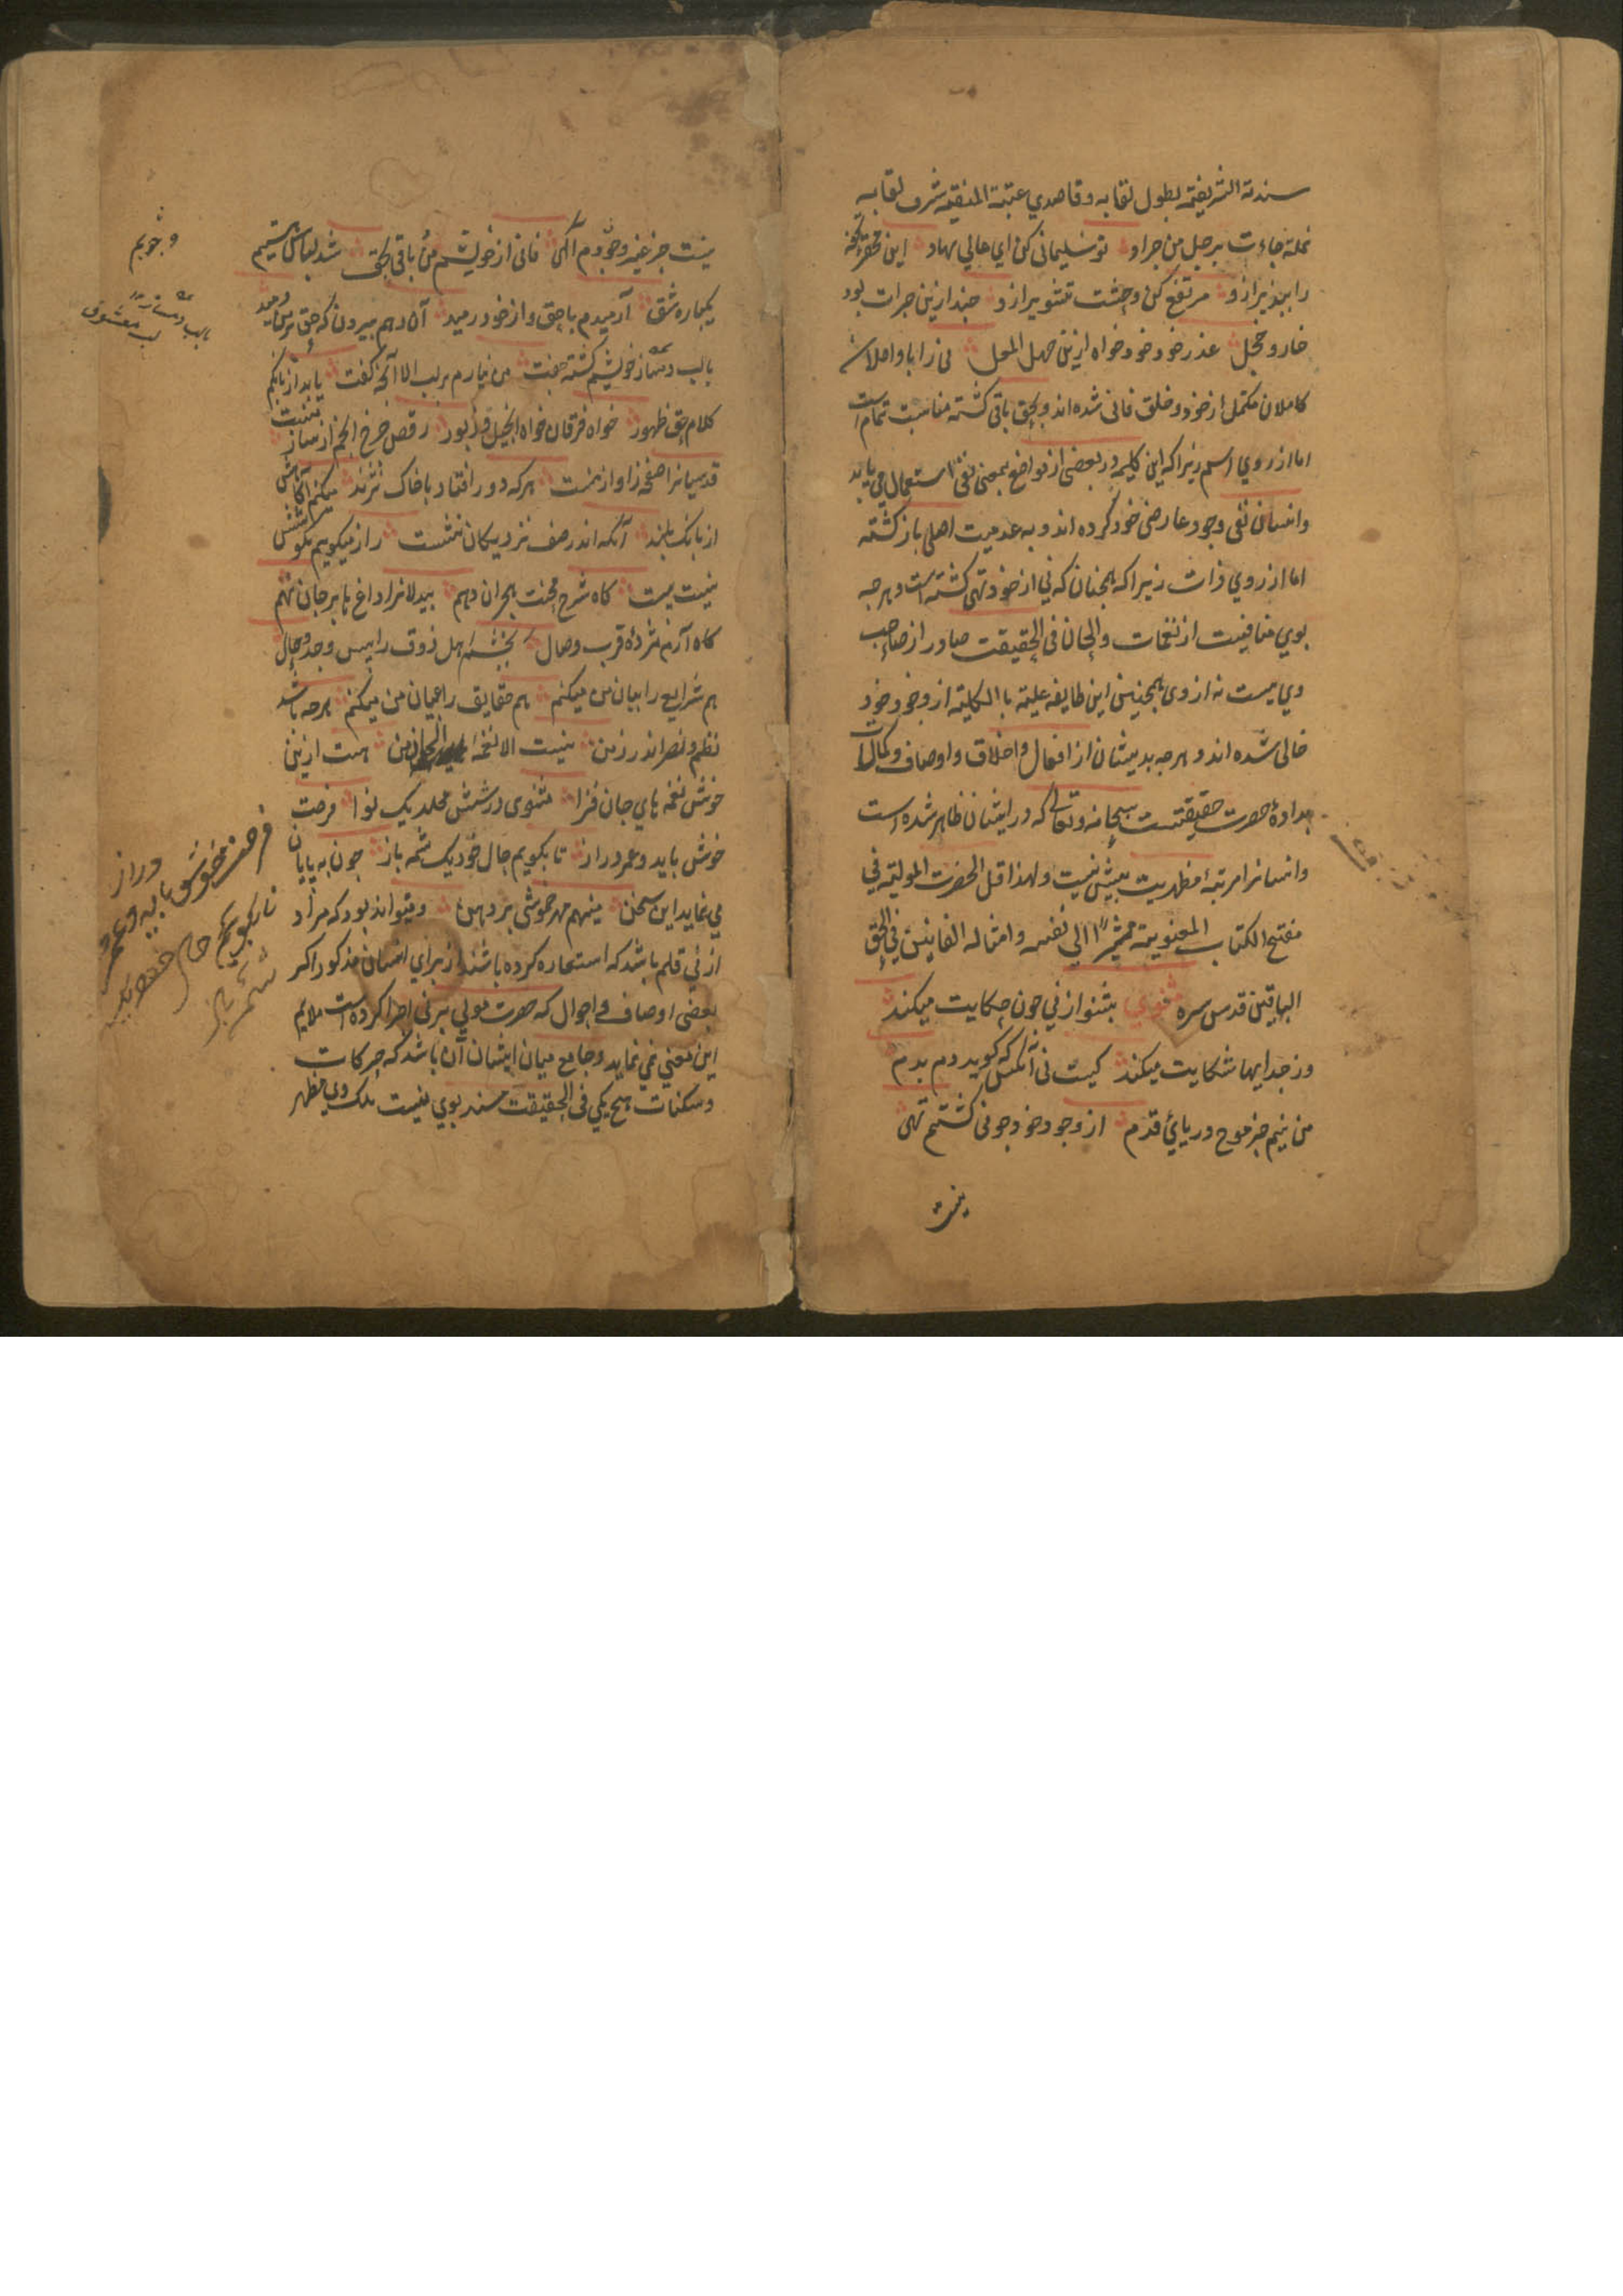 سندته الشریفه بطول لقابه وقاصدی عتبته المنیفه شرف لقابه
نملة جاءت برجل من جراد تو سلیمانی کن ای عالی نهاد این محقر تحفه
را بپذیر ازو مرتفع کن وحشت تشویر ازو چند ازین جرات بود
خار و خجل عذر خود خود خواه ازین جهل المعل نی را با واصلان
کاملان مکمل از خود و خلق فانی شده اند و بحق باقی کشته مناسبت تمام است
اما از روی اسم زیرا که این کلیمه در بعضی از مواضع بمعنی نفی استعمال می یابد
وایشان نفی وجود عارضی خود کرده اند و به عدمیت اصلی باز کشته
اما از روی ذات زیرا که همچنان که نی از خود تهی کشته است و هرچه
بوی مضافیست از نغمات والحان فی الحقیقت صادر از صاحب
وی یست نه از وی همچنین این طایفه علیه با الکلیته از وجود خود
خالی شده اند و هرچه بدیشان از افعال و اخلاق و اوصاف و کمالات
بداده حضرت حقیقتست سبحانه وتعالی که در ایشان ظاهر شده است
وایشانرا مرتبهٔ مظهریت بیش نیست ولهذا قبل الحضرت المولیة فی
مفتتح الکتاب المعنویة مشیرا الی نفسه وامثاله الفانین فی الحق
الباقین قدس سره مثنوی بشنو از نی چون حکایت میکند
وز جداییها شکایت میکند کیست نی آنکس که کوید دم بدم
من نیم جز موج دریای قدم از وجود خود چو نی کشتم تهی
نیست
نیست جز غیر وجودم آکهی فانی از خویشم من باقی بحق شد لباس هستیم
یکباره شق آرمیدم با حق و از خود رمید آن دهم بیرون که حق در من دمید
با لب دمساز خویشم کشته جفت من نیارم بر لب الا آنچه کفت یابد از بانکم
کلام حق ظهور خواه فرقان خواه انجیل و زبور رقص چرخ انجم از ساز منست
قدسیانرا صفحه ز آواز منست هر که دور افتاد با خاک نژند میکنم آکاهش
از بانک بلند آنکه اندر صف نزدیکان نشست راز میکویم بکوشش
نیست پست کاه شرح محنت هجران دهم بیدلانرا داغ ها بر جان نهم
کاه آرم مژدهٔ قرب وصال بخشم اهل ذوق را بس وجد و حال
هم شرایع را بیان من میکنم هم حقایق را عیان من میکنم هرچه باشد
نظم و نصر اندر زمن نیست الا نغمهٔ الحان من هست ازین
خوش نغمه های جان فزا مثنوی در شش مجلد یک نوا فرصت
خوش باید و عمر دراز تا بکویم حال خود یک شمه باز چون به پایان
می نماید این سخن مینهم مهر خموشی بر دهن و میتواند بود که مراد
از نی قلم باشد که استعاره کرده باشند از برای انسان مذکور اکر
بعضی اوصاف و احوال که حضرت مولی بر نی اجرا کرده است ملایم
این معنی نمی نماید و جامع میان ایشان آن باشد که حرکات
و سکنات هیچ یکی فی الحقیقت مسند بوی نیست بلک وی مظهر
وجودم
فرصت خوش باید و عمر
دراز
تا بکویم حال خود یک
شمهٔ باز